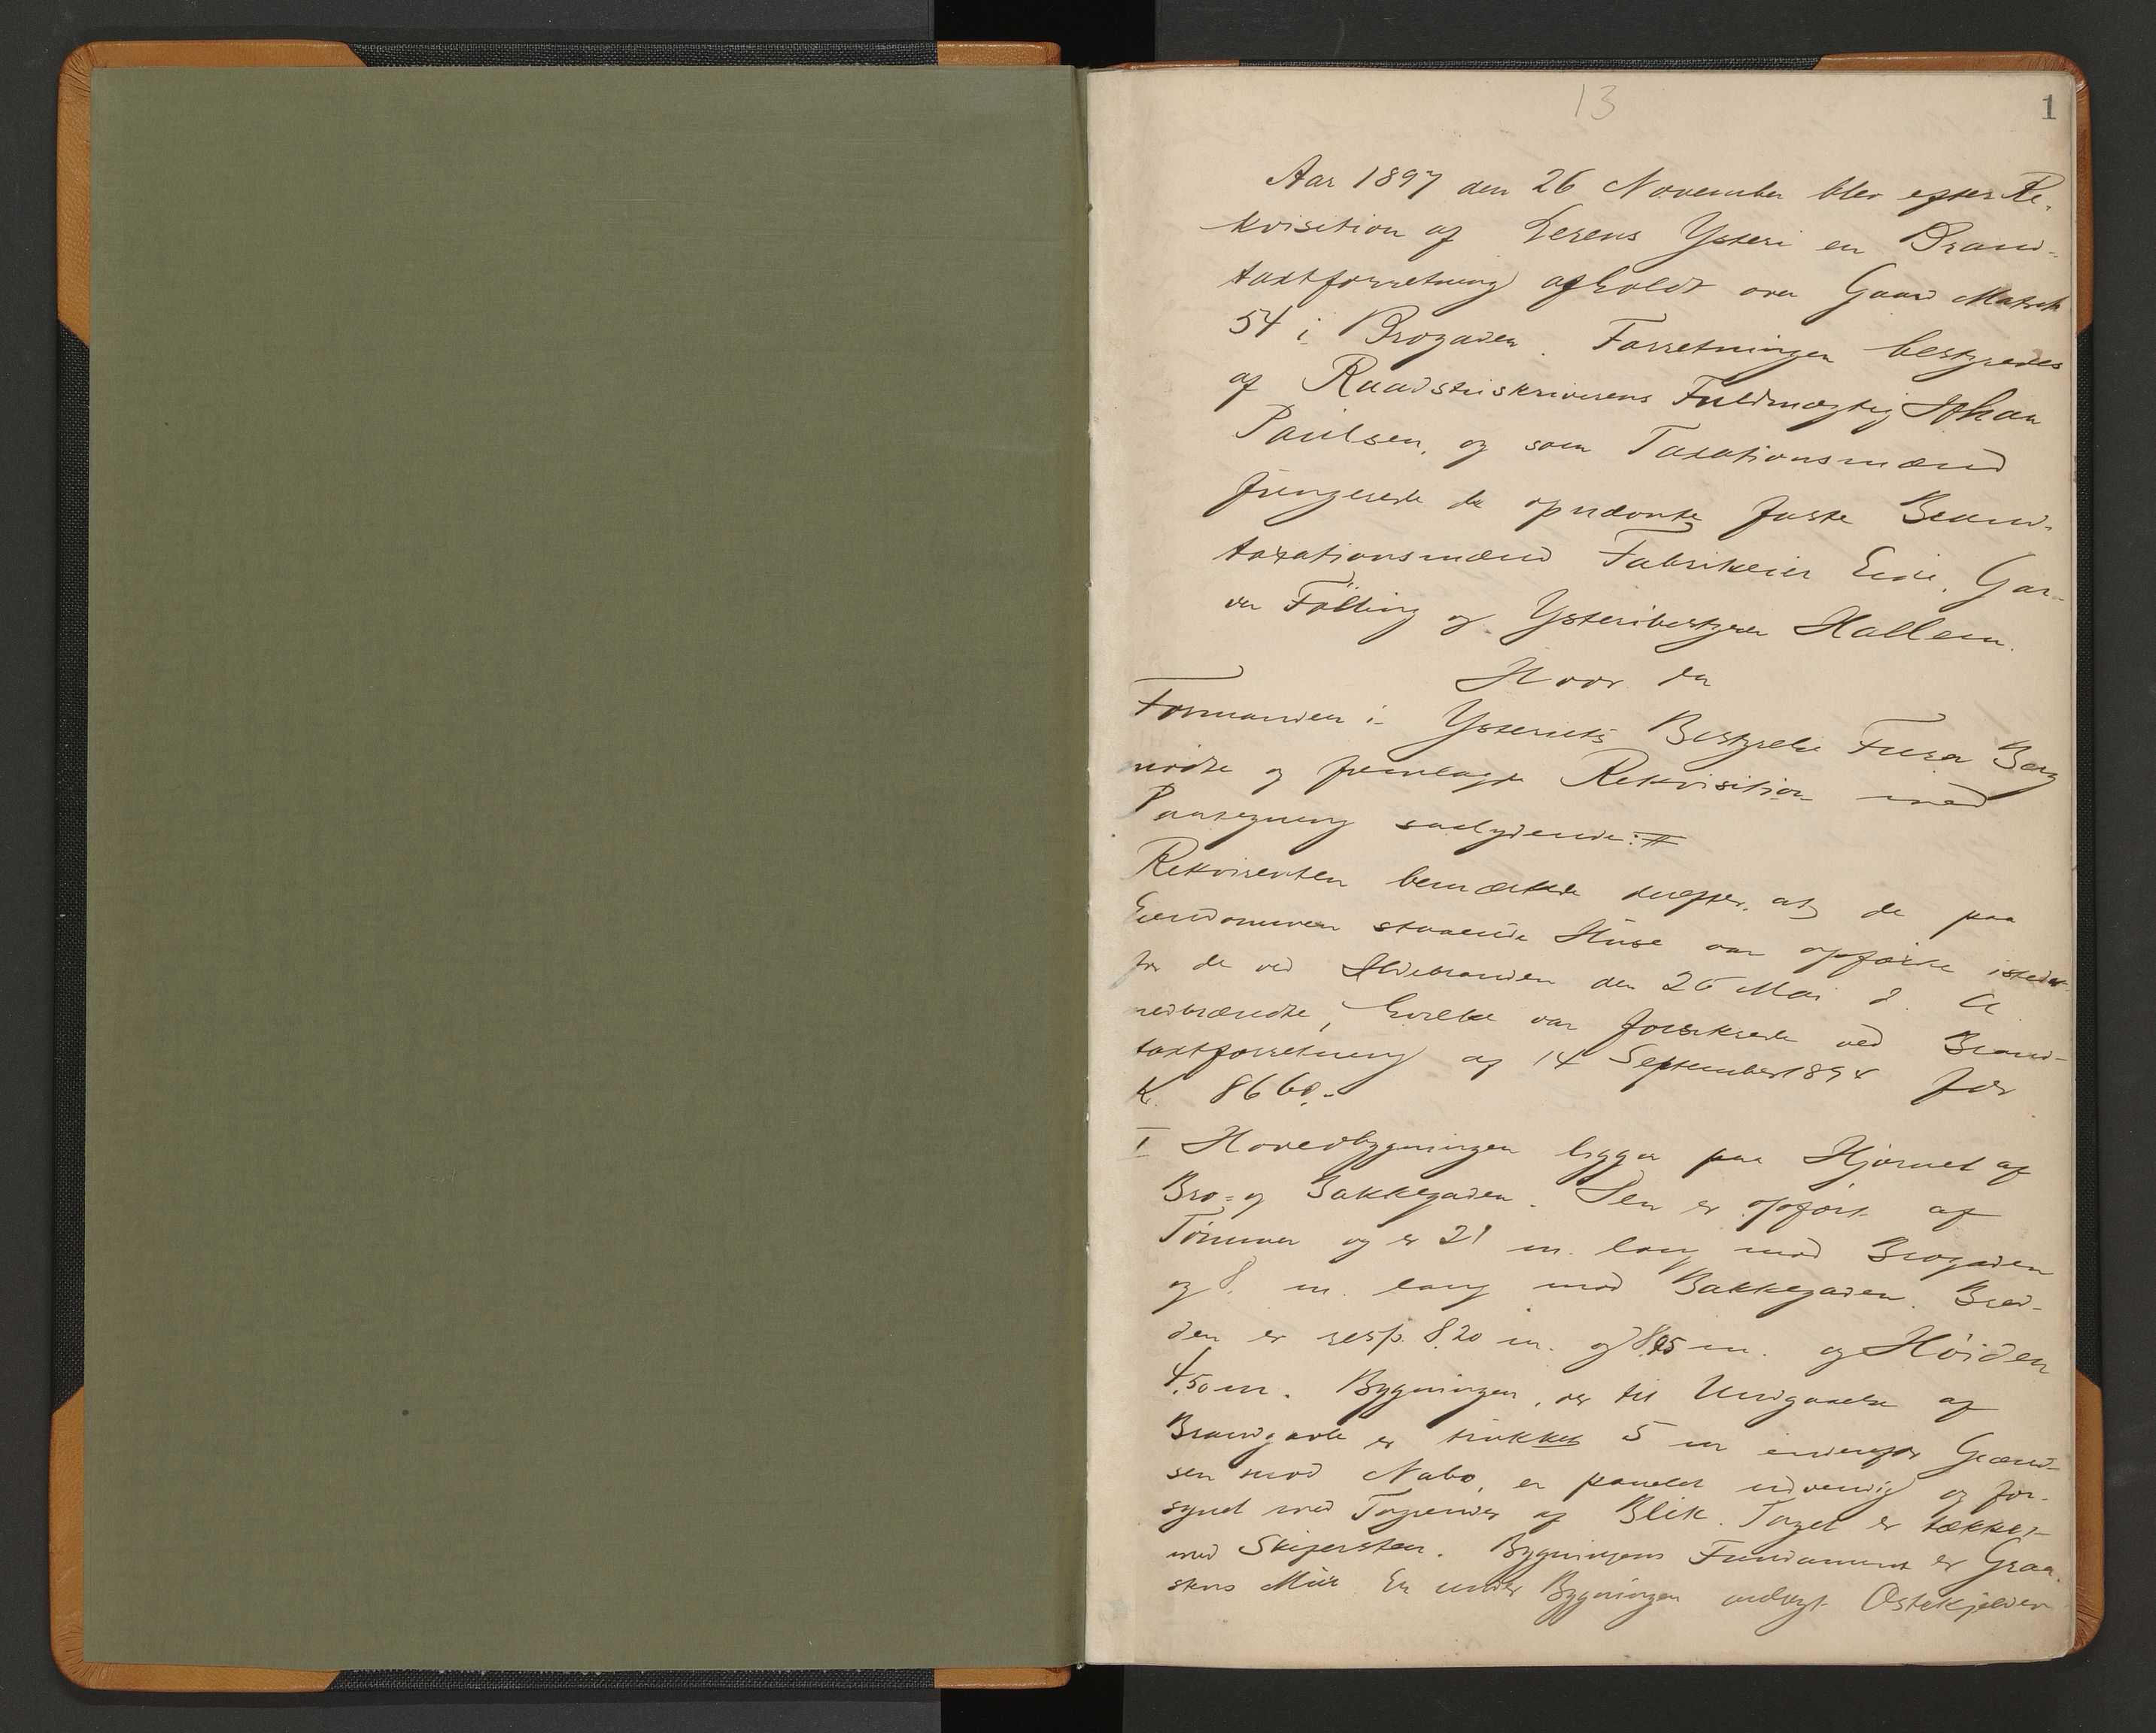 13
1
Aar 1897 den 26 November blev efter Re-
kvisition af Ysteri en Brand-
taxtforretning afholdt over Gaard Matrik
54 i Brogaden. Forretningen bestyredes
af Raadstuskriverens Fuldmægtig Johan
Paulsen, og som Taxationsmænd
fungerede de opnævnte faste Brand-
taxationsmænd Fabrikeier Eide, Gar-
ver Fölling og Ysteribestyrer Hallem.
Hvor da
Formanden i Ysteriets Bestyrelse Berg
mødte og fremlagde Rekvisition med
Paategning saalydende:
Rekvirenten bemærkede derefter, at de paa
Eiendommen staaende Huse var opførte istedet
for de ved Ildebranden den 26 Mai d. A.
nedbrændte, hvilke var forsikrede ved Brand-
taxtforretning af 14 September 1894 for
Kr. 8660.-
I Hovedbygningen ligger paa Hjørnet af
Bro- og Bakkegaden. Den er opført af
Tømmer og er 21 m. lang mod Brogaden
og 8 m. lang mod Bakkegaden. Bred-
den er resp. 8.20 m. og m. og Høiden
4.50 m. Bygningen, der til Undgaaelse af
Brandgavle er trukket 5 m indenfor Grænd-
sen mod Nabo, er panelet udvendig og for-
synet med Tagrender af Blik. Taget er tækket
med Skifersten. Bygningens Fundament er Graa-
stens Mur. En under Bygningen anlagt Ostekjelder